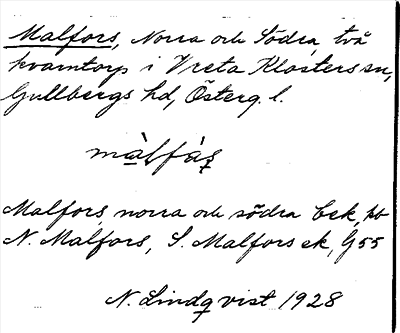 Malfors, Norra och Södra, två
kvarntorp i Vreta Klosters sn,
Gullbergs hd, Österg. l.
màlfás̩
Malfors, norra och södra Cek, hb
N. Malfors, S. Malfors ek, G 55
N. Lindqvist 1928